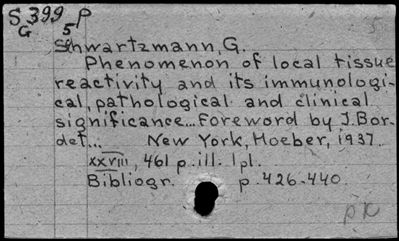 S 399 P
G 5
Schwartzmann, G.
Phenomenon of local tissue
reactivity and its immunologi-
cal, pathological and clinical
significance... Foreword by J. Bor-
det... New York, Hoeber, 1937.
xxviii, 461 p. ill. 1 pl.
Bibliogr. p. 426-440.